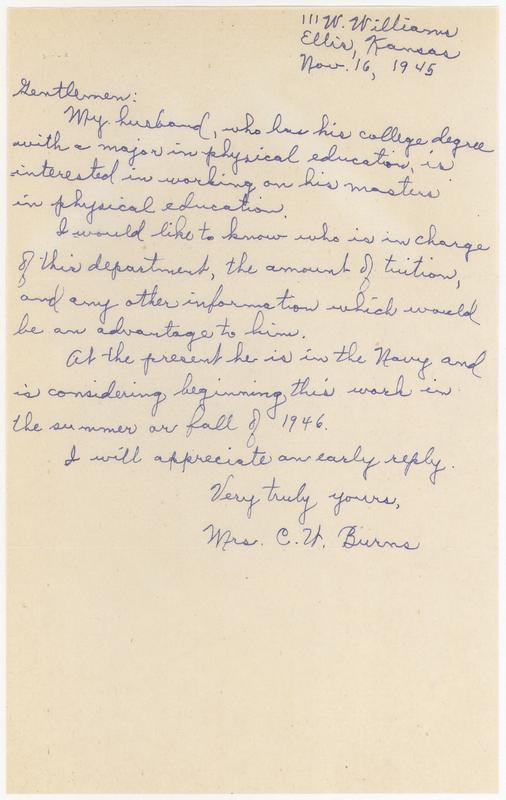 111 W. Williams
Ellis, Kansas
Nov. 16, 1945
Gentlemen:
My husband, who has his college degree
with a major in physical education, is
interested in working on his masters
in physical education.
I would like to know who is in charge
of this department, the amount of tuition,
and any other information which would
be an advantage to him.
At the present he is in the Navy and
is considering beginning this work in
the summer or fall of 1946.
I will appreciate an early reply.
Very truly yours,
Mrs. C. W. Burns